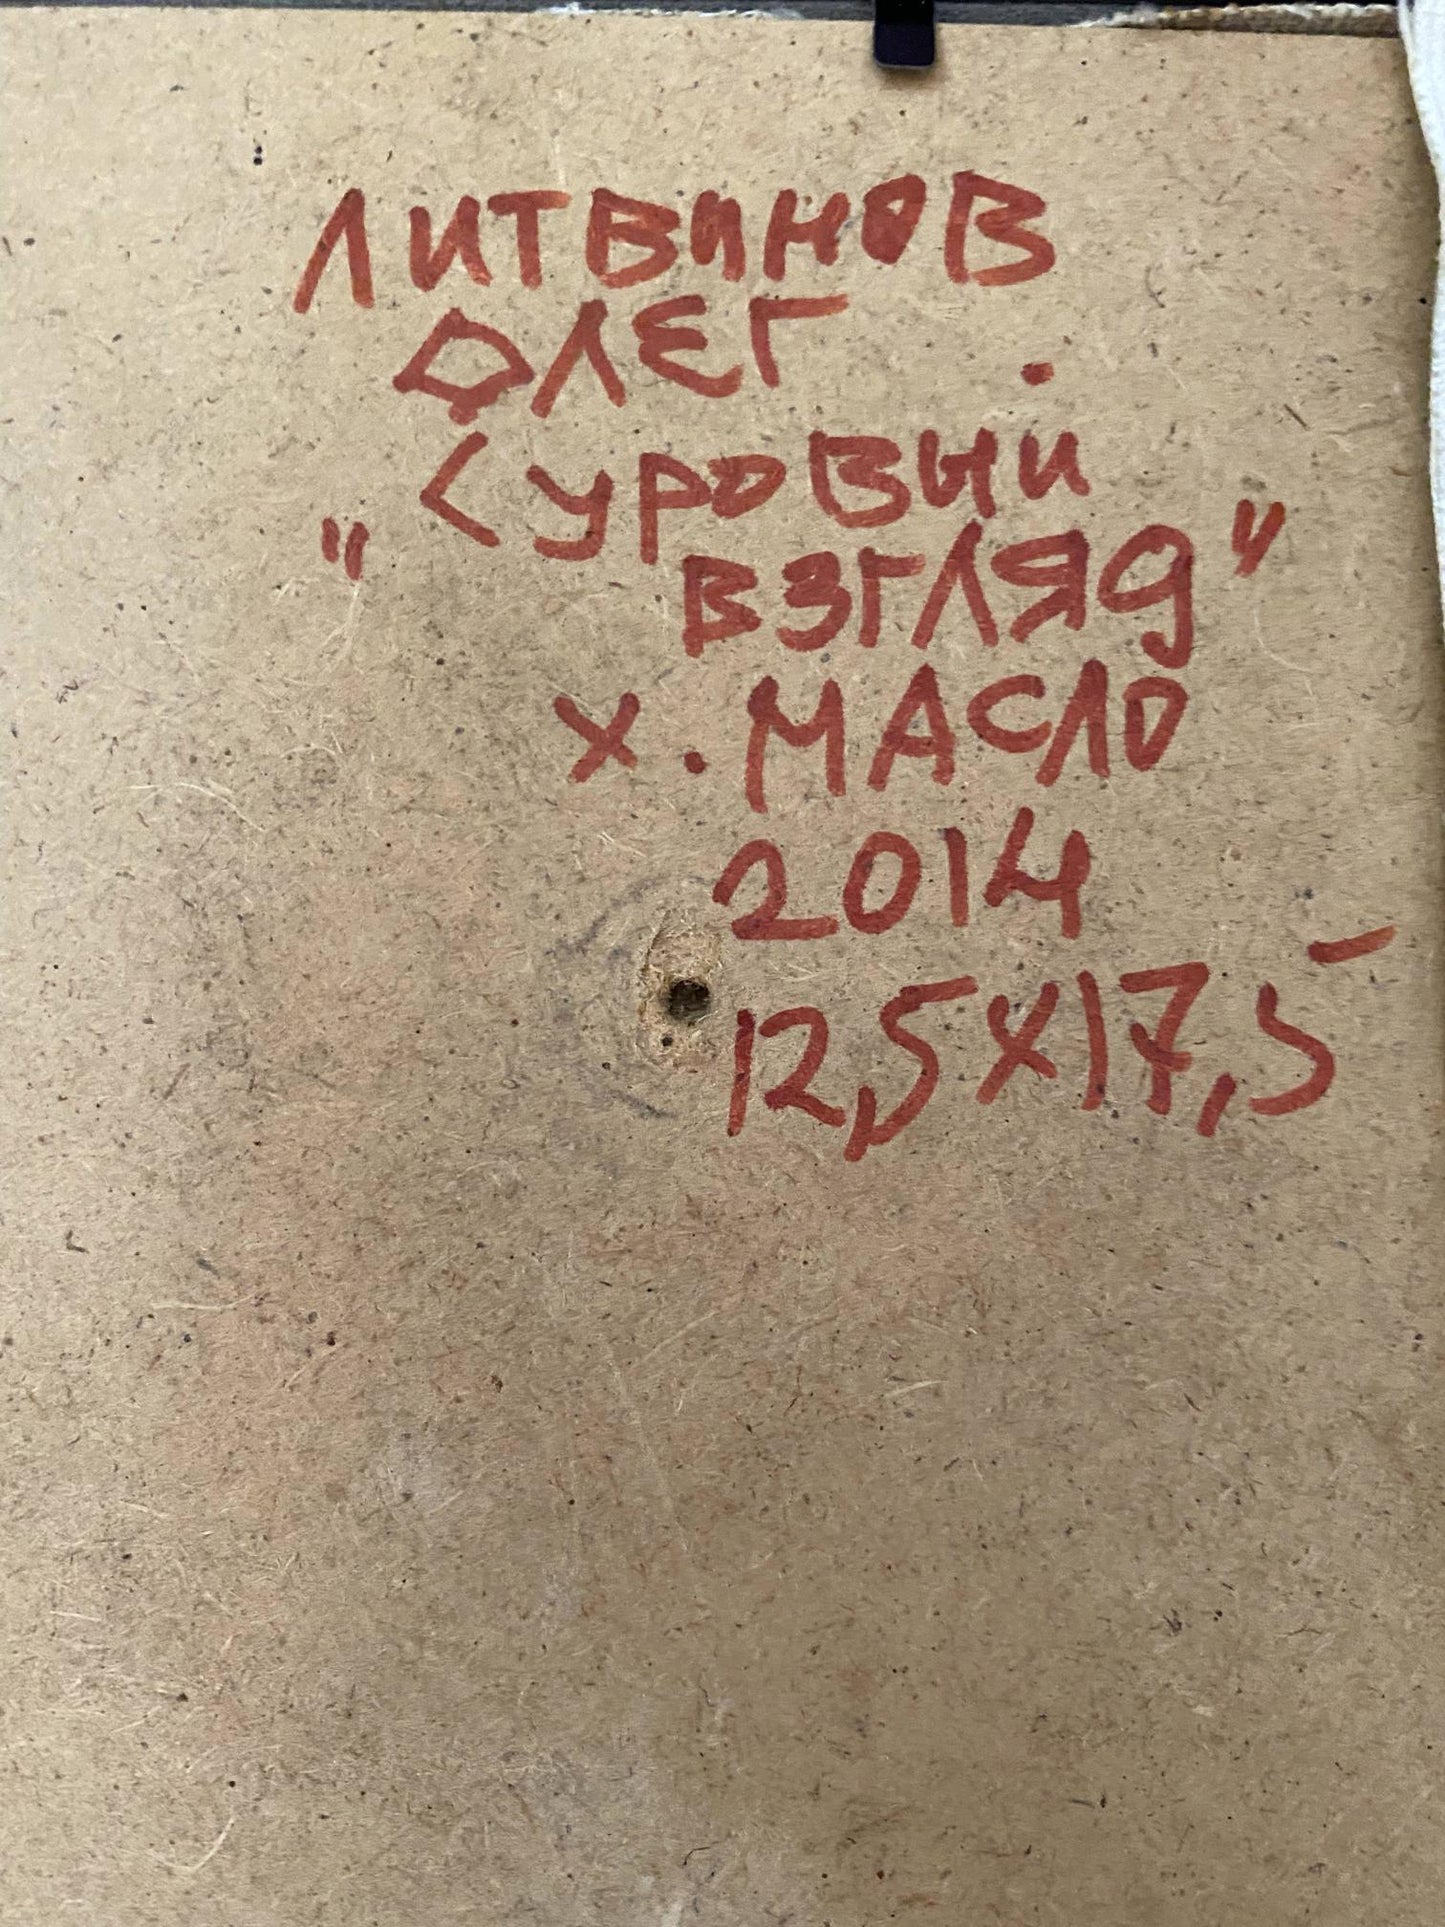 ЛИТВИНОВ
ОЛЕГ
"Суровый
ВЗГЛЯД"
х. МАСЛО
2014
12,5х17,5